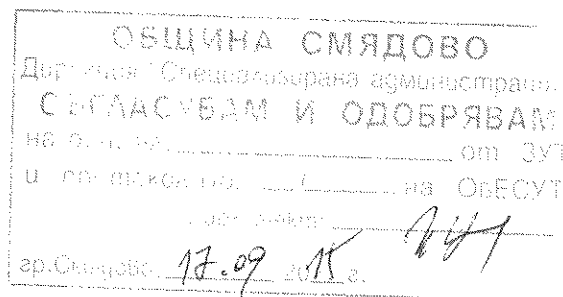 ОБЩИНА СМЯДОВО
Дирекция "Специализирана администрация
СЪГЛАСУВАМ И ОДОБРЯВАМ
на от ЗУТ
и протокол No. на ОбЕСУТ
гр.Смядово, 17.09 2015г.